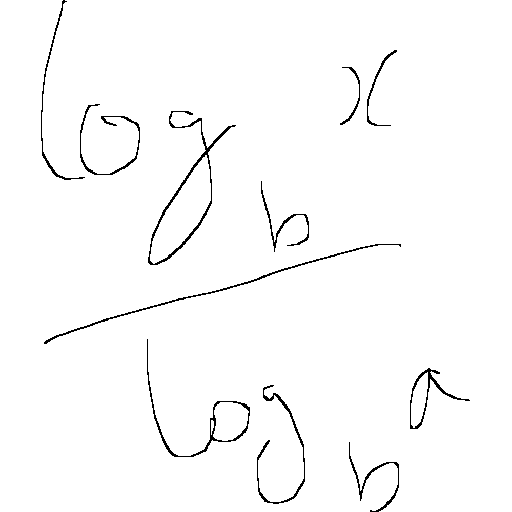 log_b x
log_b a